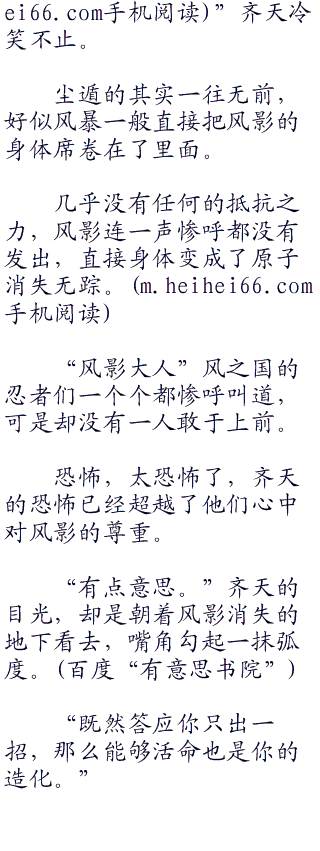 ei66.com手机阅读)”齐天冷
笑不止。
尘遁的其实一往无前，
好似风暴一般直接把风影的
身体席卷在了里面。
几乎没有任何的抵抗之
力，风影连一声惨呼都没有
发出，直接身体变成了原子
消失无踪。(m.heihei66.com
手机阅读)
“风影大人”风之国的
忍者们一个个都惨呼叫道，
可是却没有一人敢于上前。
恐怖，太恐怖了，齐天
的恐怖已经超越了他们心中
对风影的尊重。
“有点意思。”齐天的
目光，却是朝着风影消失的
地下看去，嘴角勾起一抹弧
度。(百度“有意思书院”)
“既然答应你只出一
招，那么能够活命也是你的
造化。”